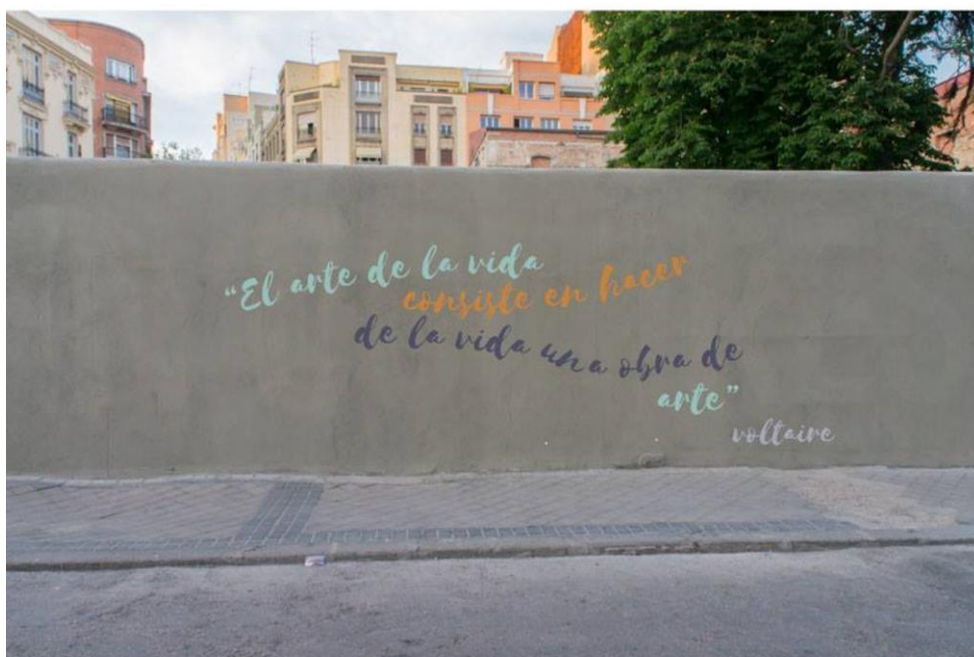 “El arte de la vida
consiste en hacer
de la vida una obra de
arte”
voltaire